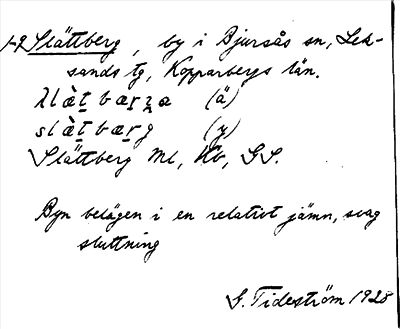 1-2 Slättberg, by i Bjursås sn, Lek-
sands tg, Kopparbergs län.
(ä)
(y)
Slättberg Ml, Kb, GS.
Byn belägen i en relativt jämn, svag
sluttning
G. Tideström 1928